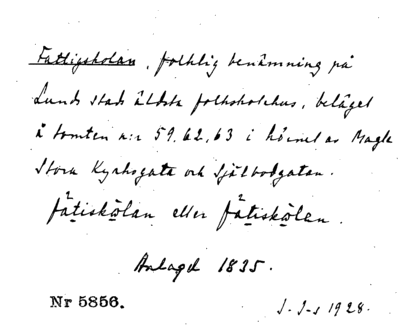 Fattigskolan, folklig benämning på
Lunds stads äldsta folkskolehus, beläget
å tomten n:r 59, 62, 63 i hörnet av Magle
Stora Kyrkogata och Själbodgatan.
fàtiskölan eller fàtiskölan.
Anlagd 1835.
Nr 5856.
J. I-s 1928.